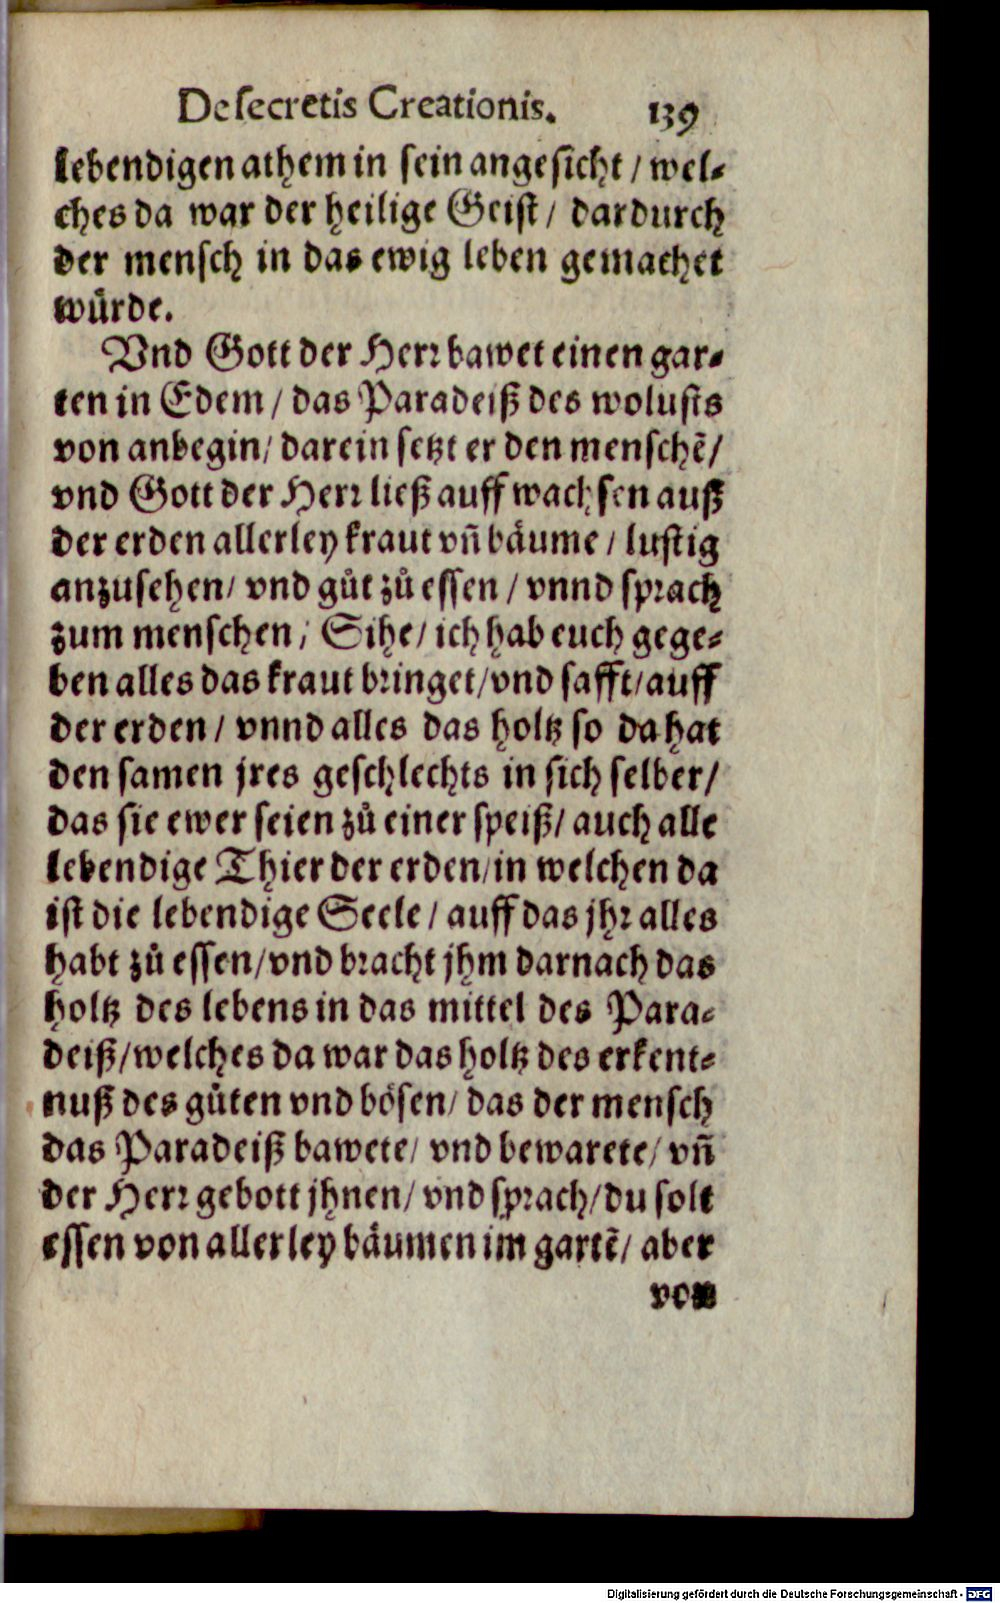 De secretis Creationis. 139
lebendigen athem in sein angesicht / wel⸗
ches da war der heilige Geist / dardurch
der mensch in das ewig leben gemachet
wuͤrde.
Vnd Gott der Herr bawet einen gar⸗
ten in Edem / das Paradeiß des wolusts
von anbegin / darein setzt er den menschẽ /
vnd Gott der Herr ließ auff wachsen auß
der erden allerley kraut vñ baͤume / lustig
anzusehen / vnd guͦt zuͦ essen / vnnd sprach
zum menschen / Sihe / ich hab euch gege⸗
ben alles das kraut bringet / vnd safft / auff
der erden / vnnd alles das holtz so da hat
den samen jres geschlechts in sich selber /
das sie ewer seien zuͦ einer speiß / auch alle
lebendige Thier der erden / in welchen da
ist die lebendige Seele / auff das jhr alles
habt zuͦ essen / vnd bracht jhm darnach das
holtz des lebens in das mittel des Para⸗
deiß / welches da war das holtz des erkent⸗
nuß des guͦten vnd boͤsen / das der mensch
das Paradeiß bawete / vnd bewarete / vñ
der Herr gebott jhnen / vnd sprach / du solt
essen von allerley baͤumen im gartẽ / aber
von
Digitalisierung gefördert durch die Deutsche Forschungsgemeinschaft - DFG